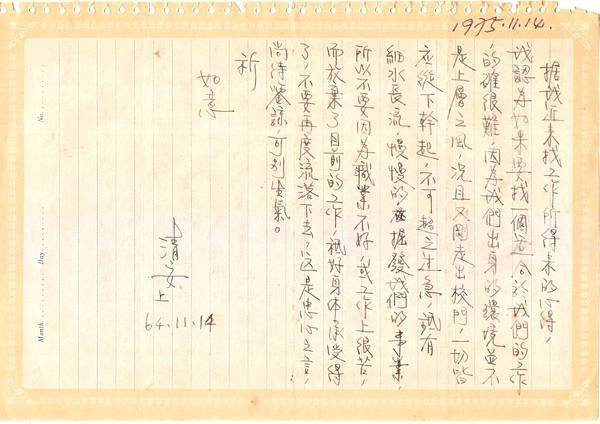 1975.11.14.
據我近來找工作所得來的心得，
我認為如果要找一個適合於我們的工作
的確很難，因為我們出身的環境並不
是上層之風，況且又剛走出校門，一切皆
應從下幹起，不可超之生急，祇有
細水長流，慢慢的 挖掘發我們的事業，
所以不要因為職業不好，或工作上很苦，
而放棄了目前的工作，祇好身体承受得
了，不要再度流落下去，這是忠心之言，
尚待鑒諒，可別生氣。
祈
如意
清安
上
64.11.14
No.
Day
Month